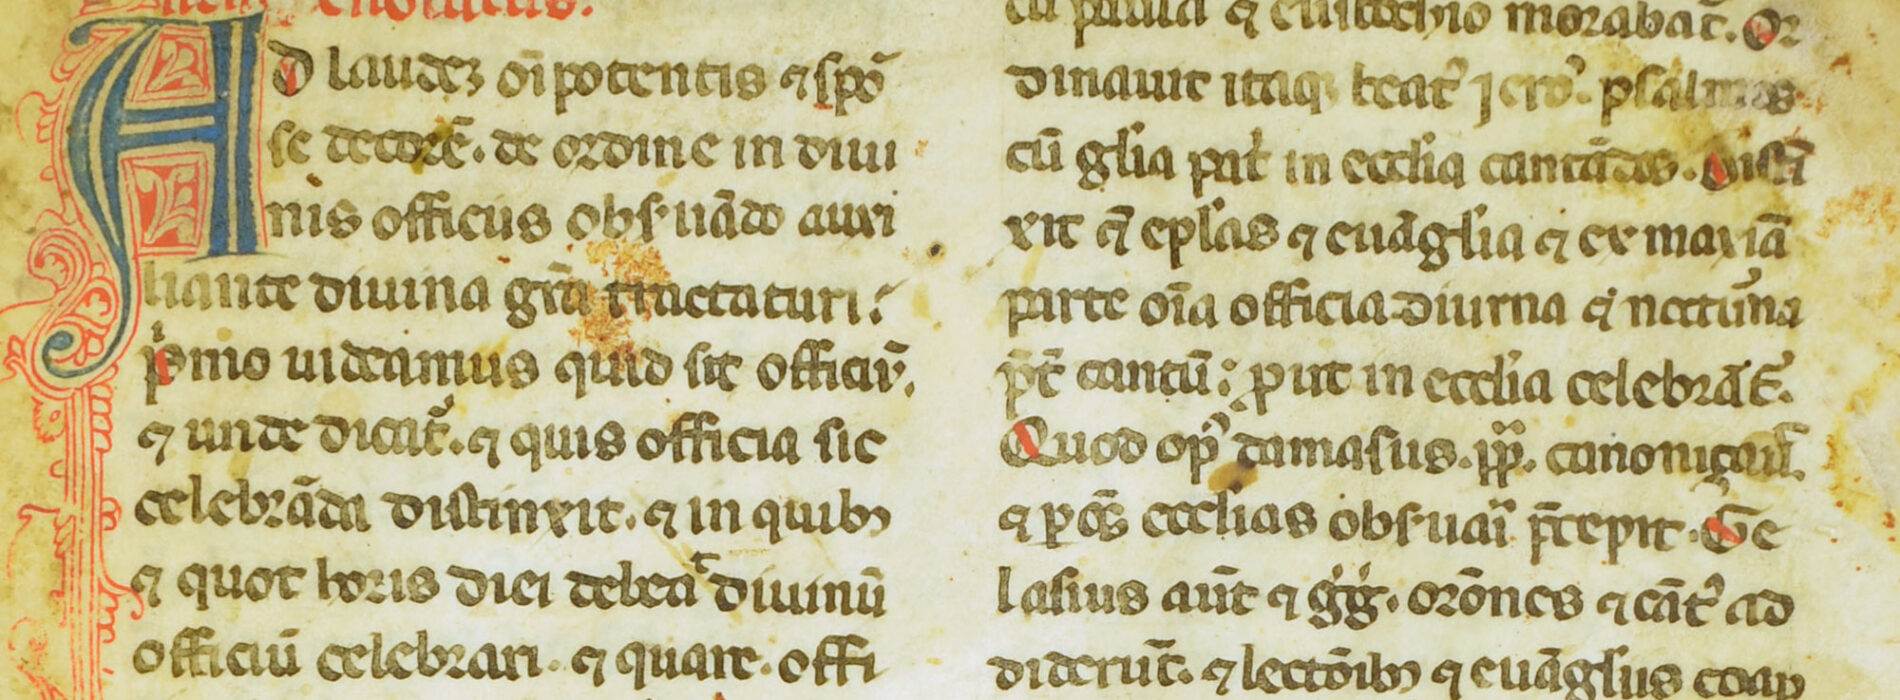 AD laudez oı̄potentis ⁊ spō
se decorē. de ordine in diui
nis officiis obs̛uādo auxi
liante diuina grā tractaturi.
pⁱmo uideamus quid sit officiū.
⁊ unde dicat᷑. ⁊ quis officia sic
celebrāda distinxit. ⁊ in quibꝫ
⁊ quot horis diei debeāt diuinū
officiū celebrari. ⁊ quare. offi
cū paula ⁊ eustochio morabat᷑. Or
dinauit itaqꝫ beatꝰ Jeroꝰ. psalmos
cū glia pat̛ in ecclīa cantādos. Disti
xit ⁊̄ epl̄as ⁊ euāglia ⁊ ex maxiā
parte oı̄a officia diurna ⁊ noct̛una
p̄t̛ cantū: ꝓut in ecclīa celebrāt᷑.
Quod opꝰ damasus. pp̄. canonizauit
⁊ ꝑ oēs ecclīas obs̛uari p̄cepit. Ge
lasius aūt ⁊ gġ. orōnes ⁊ cātꝰ ad
diderūt. ⁊ lectōibꝫ ⁊ euāgliis coap